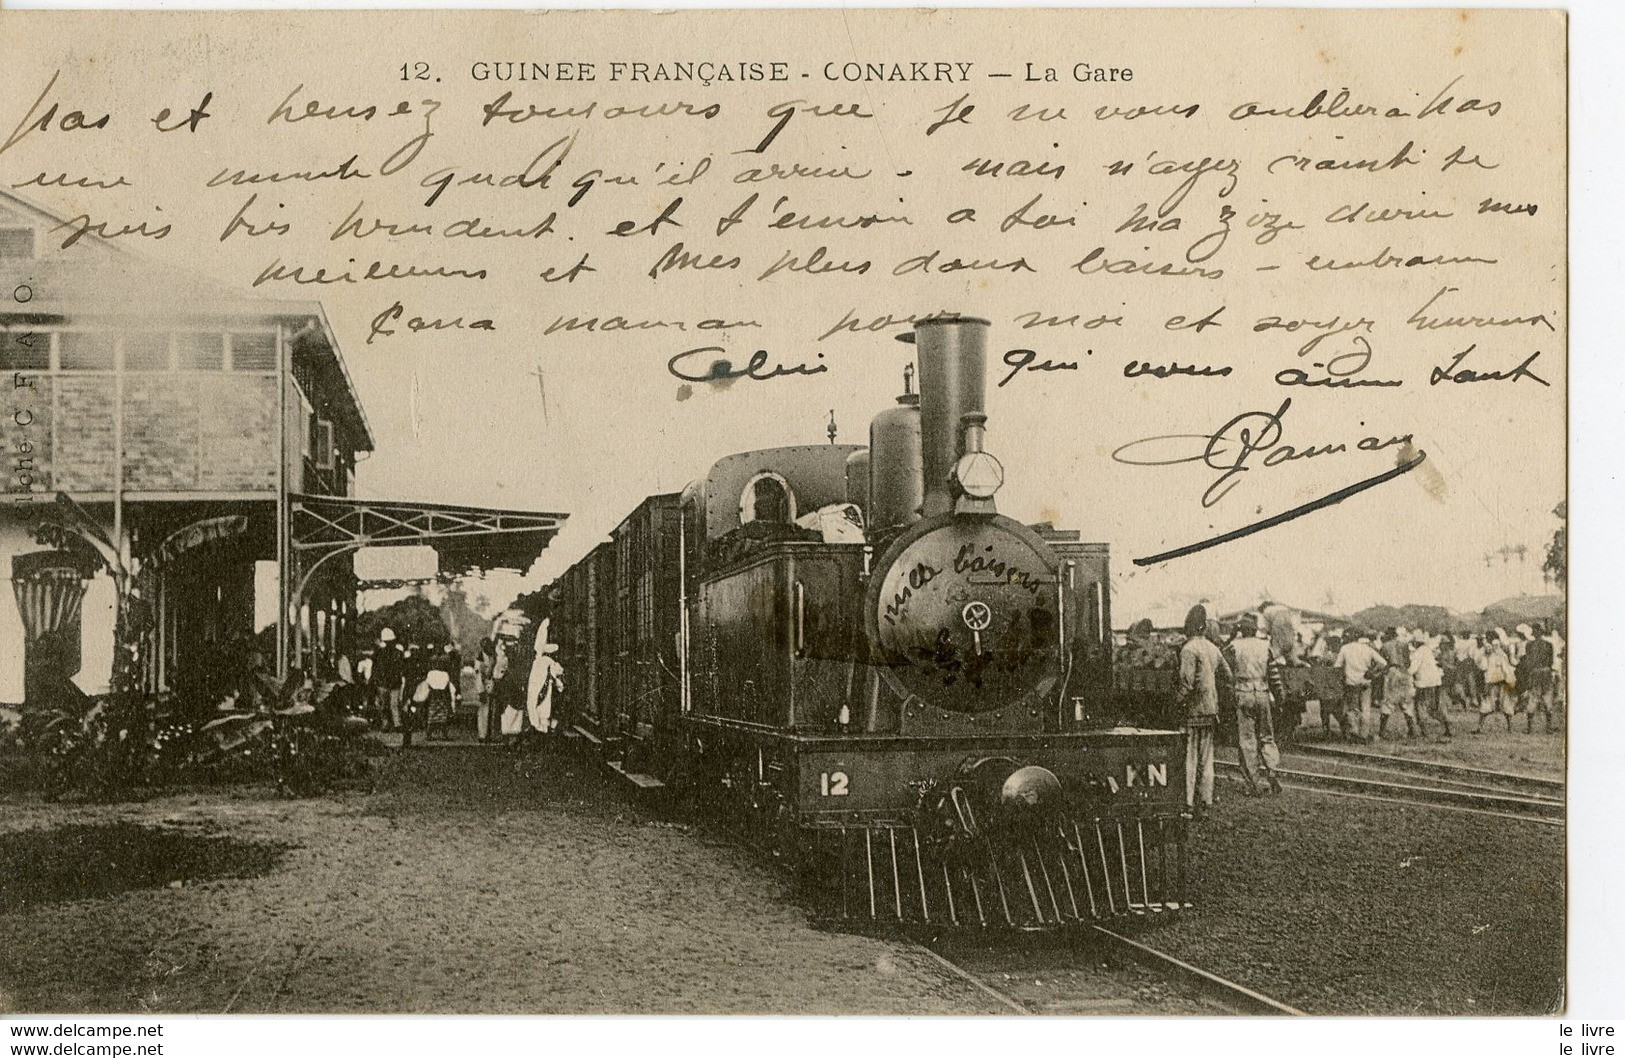 12. GUINEE FRANÇAISE - CONAKRY — La Gare
pas et pensez toujours que je ne vous oublierai pas
une minute quoi qu'il arrive. mais n'ayez crainte je
suis très prudent. et t'envoie a toi ma zize derie mes
meilleurs et mes plus doux baisers - embrasse
maman pour moi et soyez heureux
Celui qui vous aime tant
Damian
mille baisers
Cliché C. F. A. O.
12 KN
www.delcampe.net
www.delcampe.net
le livre
le livre